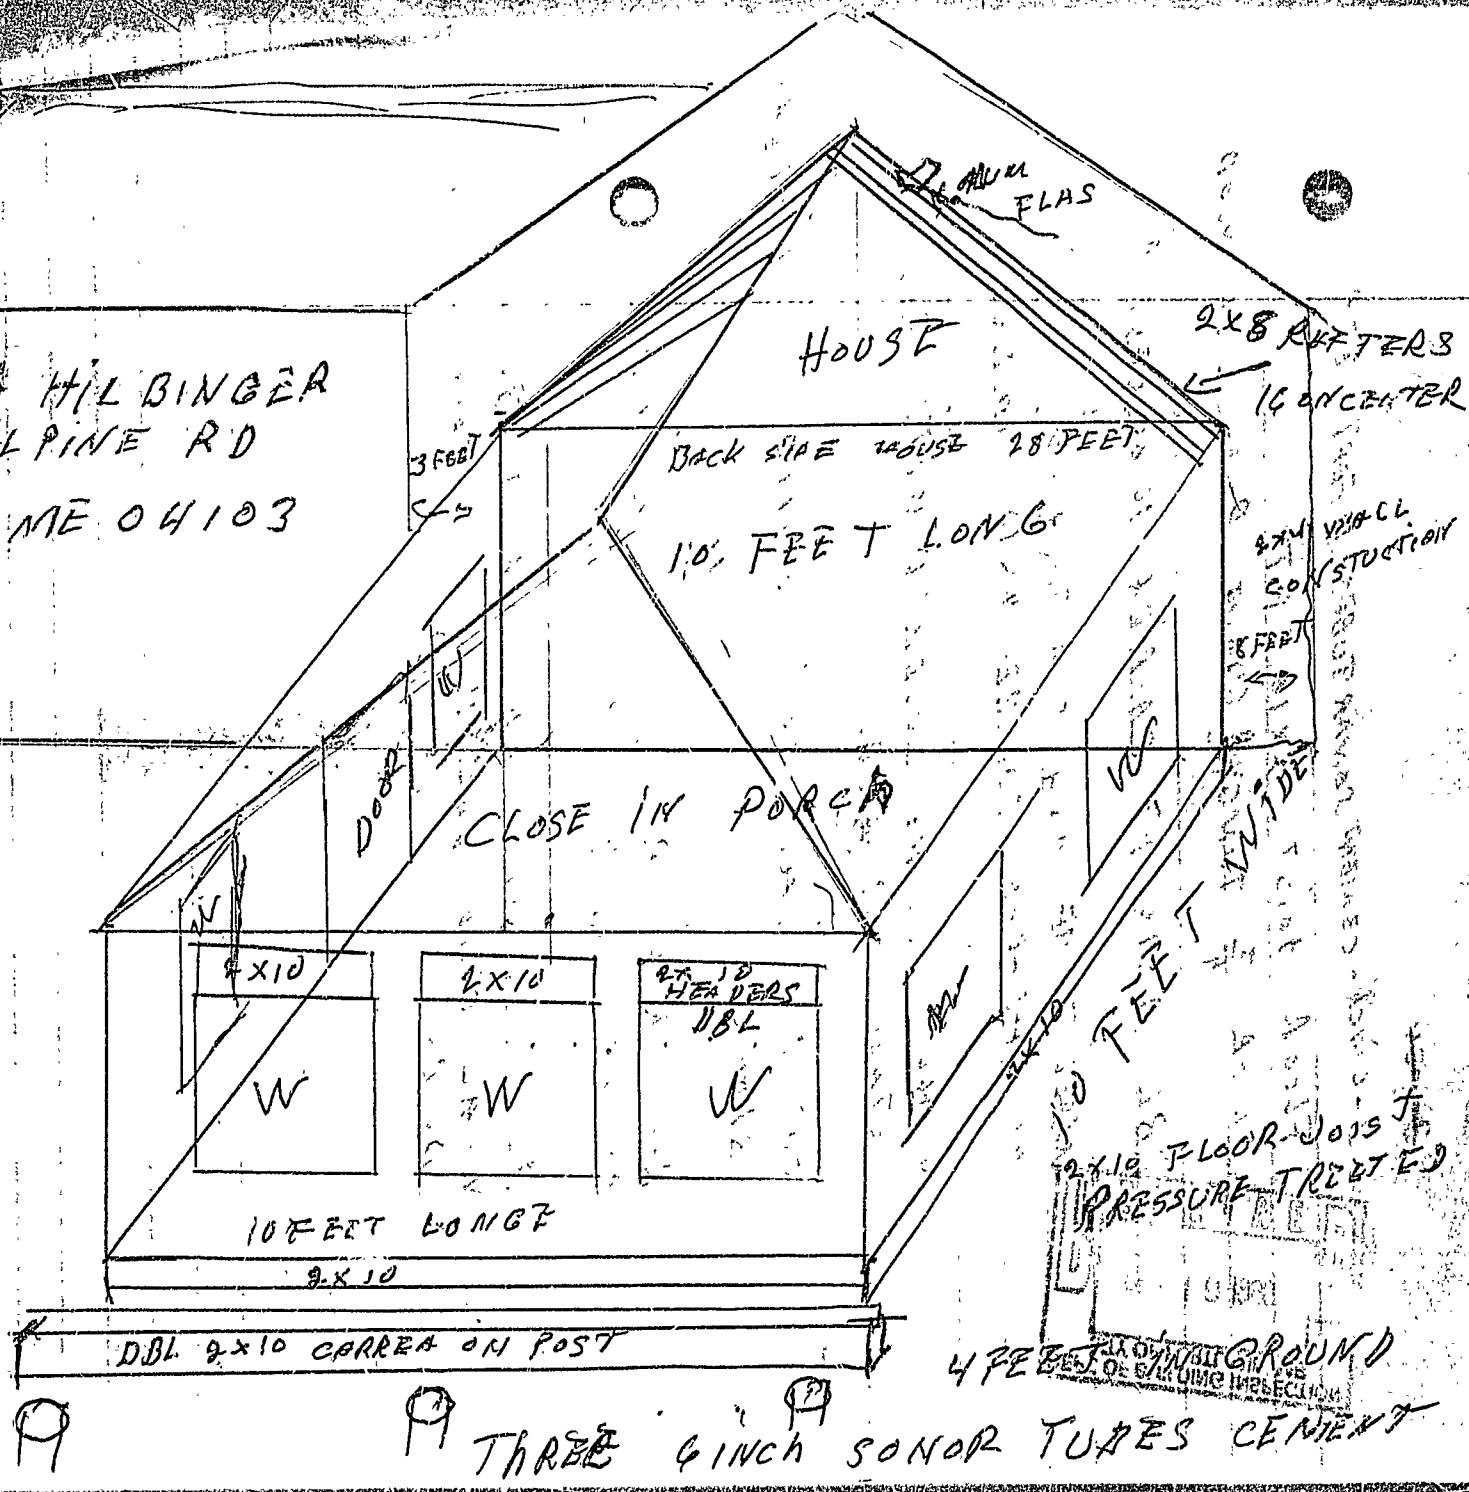 HILBINGER
PINE RD
ME 04103
ALUM
FLAS
HOUSE
2X8 RAFTERS
16 ON CENTER
3 FEET
BACK SIDE HOUSE 28 FEET
10 FEET LONG
2X4 WALL
CONSTUCTION
8 FEET
W
DOOR
W
CLOSE IN PORCH
W
2X10
2X10
2X10
HEADERS
DBL
W
W
W
W
2X10
10 FEET WIDE
10 FEET LONGE
2X10
2X10 FLOOR JOIST
PRESSURE TREETED
DBL 2X10 CARREA ON POST
4 FEET IN GROUND
THREE 6 INCH SONOR TUBES CEMENT